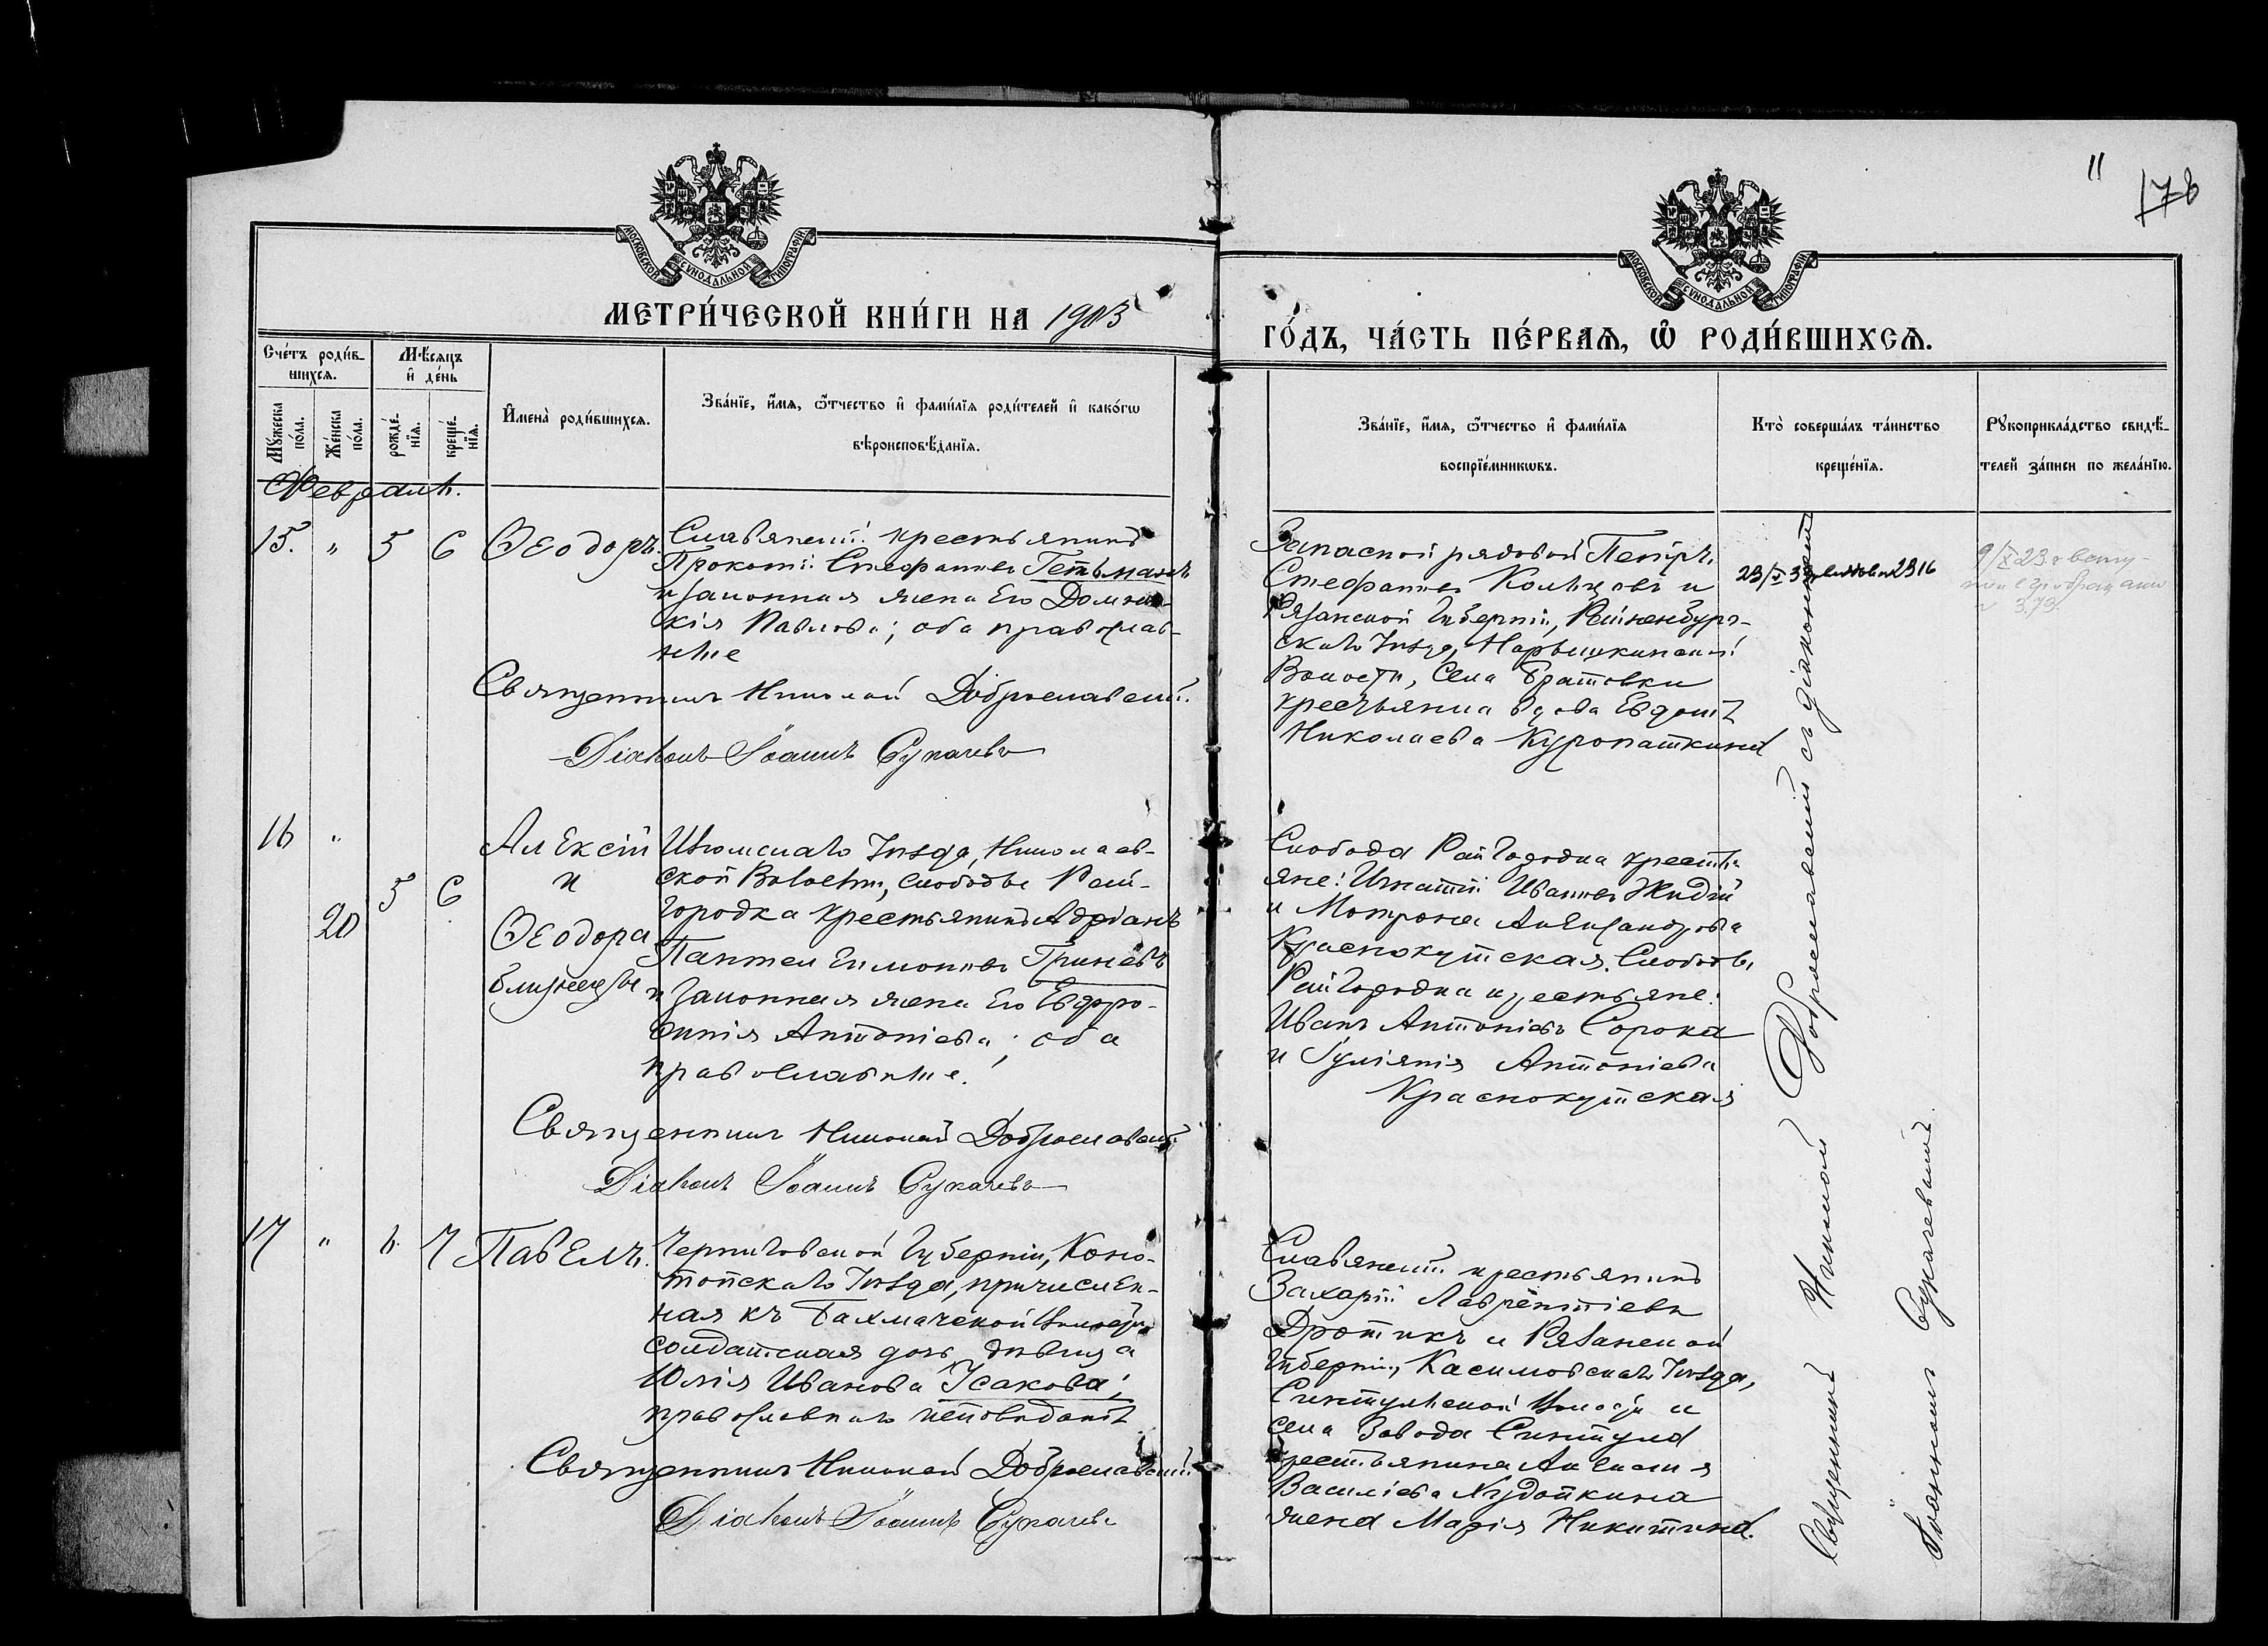 11
178
МОСКОВСКОЙ СѴНОДАЛЬНОЙ ТИПОГРАФІИ
МОСКОВСКОЙ СѴНОДАЛЬНОЙ ТИПОГРАФІИ
МЕТРИ́ЧЕСКОЙ КНИ́ГИ НА 1903
ГО́ДЪ, ЧА́СТЬ ПЕ́РВАѦ, Ѽ РОДИ́ВШИХСѦ.
Сче́тъ роди́в-
шихсѧ.
Мꙋ́жеска по́ла.
Же́нска по́ла.
Мѣ́сѧцъ
и҆ де́нь
рожде́-
нїѧ.
креще́-
нїѧ.
И҆мена̀ роди́вшихсѧ.
Зва́нїе, и҆́мѧ, ѻ҆́тчество и҆ фами́лїѧ роди́телей и҆ како́гѡ
вѣроисповѣ́данїѧ.
Зва́нїе, и҆́мѧ, ѻ҆́тчество и҆ фами́лїѧ
воспрїе́мникѡвъ.
Кто̀ соверша́лъ та́инство
креще́нїѧ.
Рꙋкоприкла́дство свидѣ́-
телей за́писи по жела́нїю.
Февраль.
15. " 5 6 Ѳеодоръ.
Славянскій крестьянинъ
Прокопій Стефановъ Гетьманъ
и законная жена его Домни-
кія Павлова; оба православ-
ные
Священникъ Николай Доброславскій.
Діаконъ Іоаннъ Сукачевъ
Запасной рядовой Петръ
Стефановъ Кольцовъ и
Рязанской Губерніи, Раненбург-
скаго Уѣзда, Нарышкинской
Волости, Села Братовки
крестьянка вдова Евдокія
Николаева Куропаткина
16 "
20 5 6
Алексій
и
Ѳеодора
близнецы
Изюмскаго Уѣзда, Николаев-
ской Волости, слободы Рай-
городка крестьянинъ Адріанъ
Пантелеимоновъ Гриневъ
и законная жена его Евфро-
синія Антоніева; оба
православные.
Священникъ Николай Доброславскій
Діаконъ Іоаннъ Сукачевъ
Слободы Райгородка крестья-
яне: Игнатій Ивановъ Жидій
и Матрона Александрова
Краснокутская. Слободы
Райгородка крестьяне:
Иванъ Антоніевъ Сорока
и Іуліянія Антоніева
Краснокутская
17 " 6. 7 Павелъ.
Черниговской Губерніи, Коно-
топскаго Уѣзда, причислен-
ная къ Бахмачской Волости,
солдатская дочь дѣвица
Юлія Иванова Усакова;
православнаго исповѣданія
Священникъ Николай Доброславскій
Діаконъ Іоаннъ Сукачевъ
Славянскій крестьянинъ
Захарій Лаврентіевъ
Дротикъ и Рязанской
Губерніи, Касимовскаго Уѣзда,
Синтульской Волости и
села Завода Синтула
крестьянина Алексія
Василіева Кудопкина
жена Марія Никитина.
Священникъ Николай Доброславскій съ діакономъ
Іоанномъ Сукачевымъ